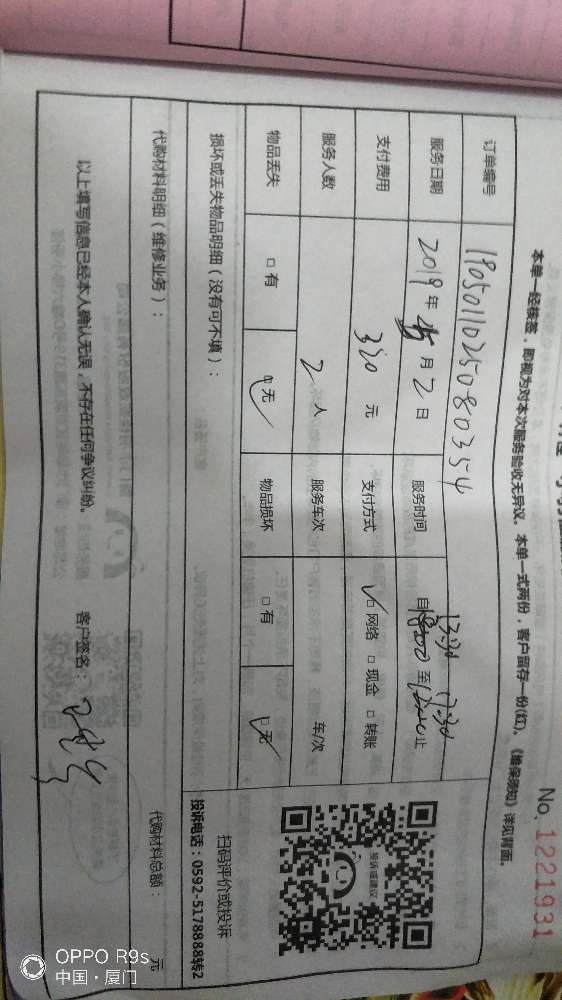 No. 1221931
本单一经核签，即视为对本次服务验收无异议。本单一式两份，客户留存一份(红)。《维保须知》详见背面。
订单编号 190501102508035 4
服务日期 2019年5月2日 服务时间 自13:30至17:30止
支付费用 320元 支付方式 ☑网络 □现金 □转账
服务人数 2人 服务车次 车/次
物品丢失 □有 ☑无 物品损坏 □有 ☑无
投诉或建议
扫码评价或投诉
投诉电话：0592-5178888转2
损坏或丢失物品明细（没有可不填）：
代购材料明细（维修业务）：
代购材料总额： 元
以上填写信息已经本人确认无误，不存在任何争议纠纷。 客户签名：
OPPO R9s
中国·厦门